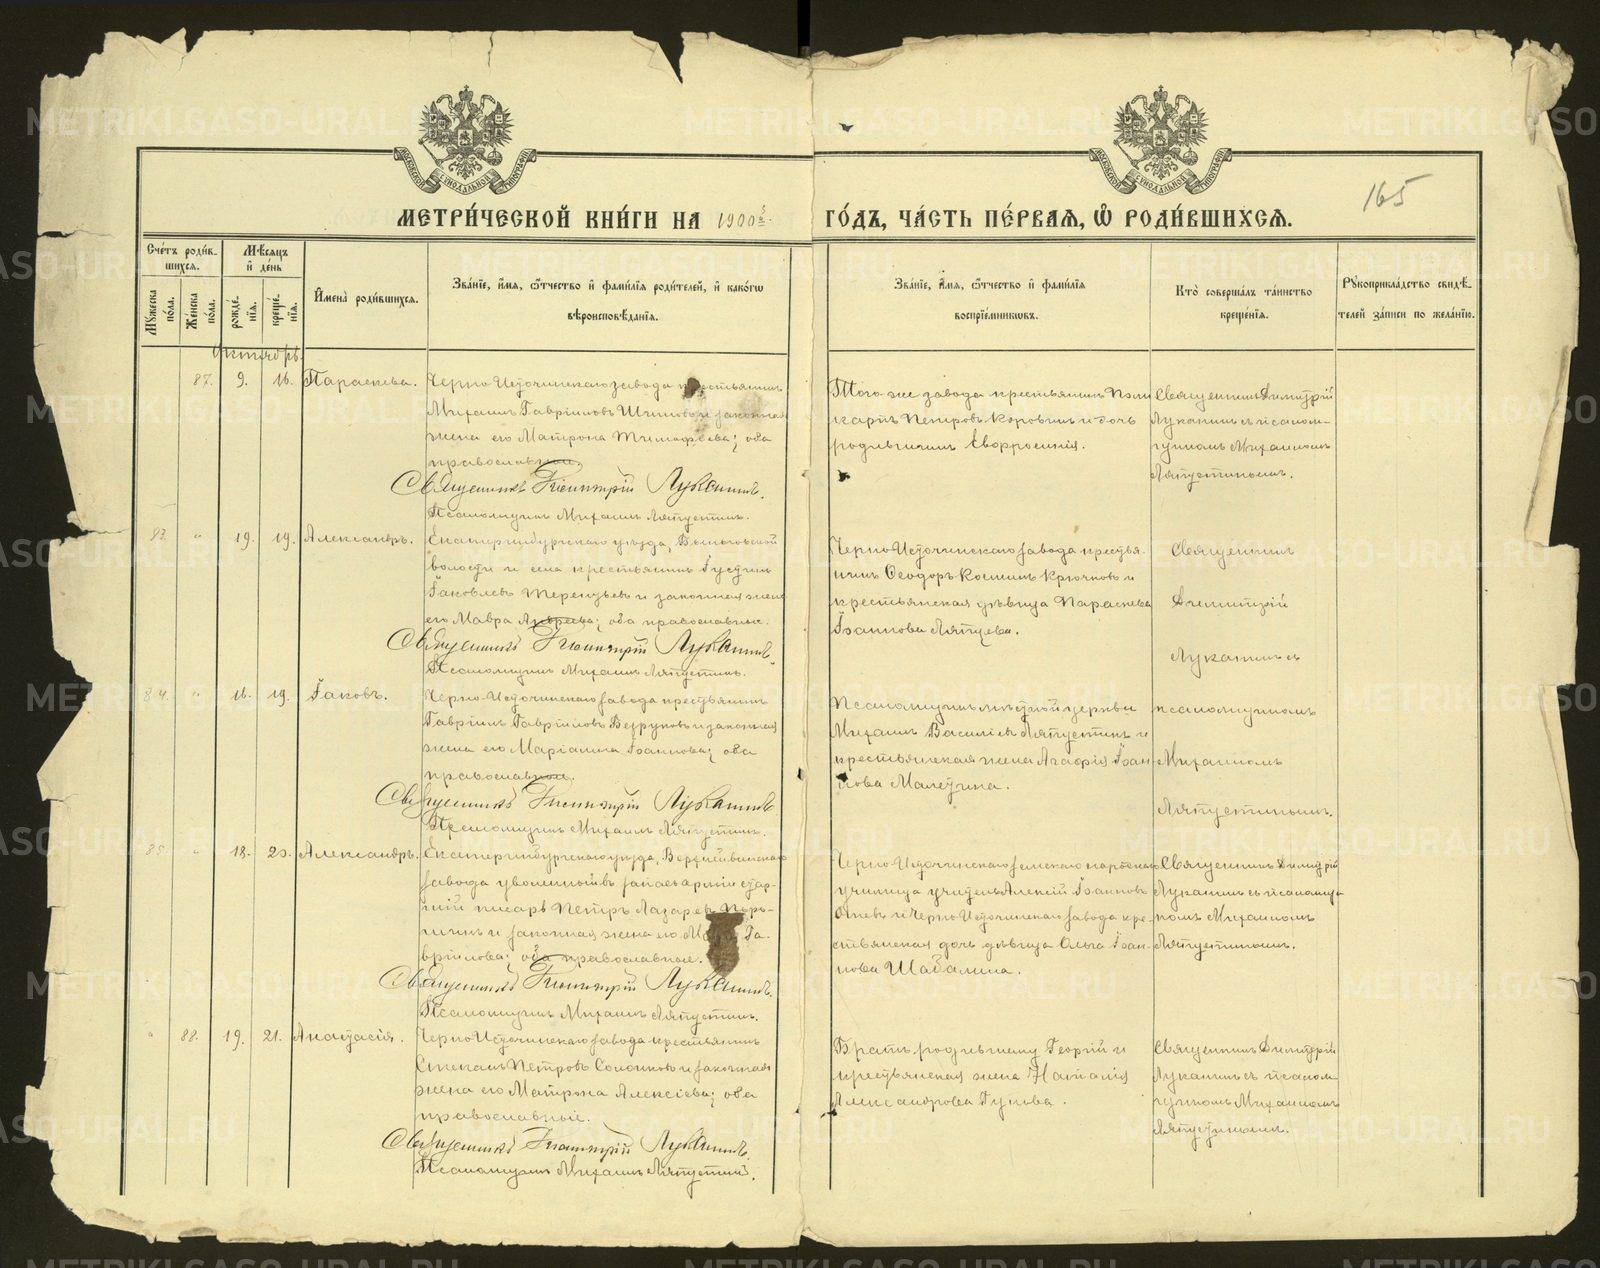 МЕТРИ́ЧЕСКОЙ КНИ́ГИ НА 1900 й ГО́ДЪ, ЧА́СТЬ ПЕ́РВАѦ, Ѽ РОДИ́ВШИХСѦ.
165
Сче́тъ роди́в-
шихсѧ.
Мѣ́сѧцъ
и҆ де́нь
Мꙋ́жеска по́ла.
Же́нска по́ла.
рожде́-
нїѧ.
креще́-
нїѧ.
И҆мена̀ роди́вшихсѧ.
Зва́нїе, и҆́мѧ, ѻ҆́тчество и҆ фами́лїѧ роди́телей, и҆ како́гѡ
вѣроисповѣ́данїѧ.
Зва́нїе, и҆́мѧ, ѻ҆́тчество и҆ фами́лїѧ
воспрїе́мникѡвъ.
Кто̀ соверша́лъ та́инство
креще́нїѧ.
Рꙋкоприкла́дство свидѣ́-
телей за́писи по жела́нїю.
Октябрь.
87. 9. 16. Параскева.
Черно-Источинскаго завода крестьянинъ
Михаилъ Гавріиловъ и законная
жена его Матрона Тимофѣева; оба
православные.
Священникъ Димитрій Луканинъ.
Псаломщикъ Михаилъ Ляпустинъ.
Того-же завода крестьянинъ Поли-
карпъ Петровъ Коровинъ и дочь
родильницы
Священникъ Димитрій
Луканинъ съ псалом-
щикомъ Михаиломъ
Ляпустинымъ.
83. „ 19. 19. Александръ.
Екатеринбургскаго уѣзда,
волости и села крестьянинъ
Іаковлевъ Терентьевъ и законная жена
его Мавра Андреева; оба православные.
Священникъ Димитрій Луканинъ
Псаломщикъ Михаилъ Ляпустинъ.
Черно-Источинскаго завода крестья-
нинъ Ѳеодоръ Козминъ Крючковъ и
крестьянская дѣвица Параскева
Іоаннова Ляпцева.
Священникъ
Димитрій
Луканинъ съ
псаломщикомъ
Михаиломъ
Ляпустинымъ.
84. „ 16. 19. Іаковъ.
Черно-Источинскаго завода крестьянинъ
Гавріилъ Гавріиловъ Безруковъ и законная
жена его Маріанна Іоаннова; оба
православные.
Священникъ Димитрій Луканинъ
Псаломщикъ Михаилъ Ляпустинъ.
Псаломщикъ мѣстной церкви
Михаилъ Василіевъ Ляпустинъ и
крестьянская жена Агафія Іоан-
нова Малыгина.
85. „ 18. 20. Александръ.
Екатеринбургскаго уѣзда, Верхнейвинскаго
завода уволенный въ запасъ арміи стар-
шій писарь Петръ Лазаревъ
и законная жена его Га-
вріилова; оба православные.
Священникъ Димитрій Луканинъ.
Псаломщикъ Михаилъ Ляпустинъ.
Черно-Источинскаго земскаго народнаго
училища учитель Алексій Іоанновъ
и Черно-Источинскаго завода кре-
стьянская дочь дѣвица Ольга Іоан-
нова Шабалина.
Священникъ Димитрій
Луканинъ съ псаломщи-
комъ Михаиломъ
Ляпустинымъ.
„ 88. 19. 21. Анастасія.
Черно-Источинскаго завода крестьянинъ
Степанъ Петровъ и законная
жена его Матрона Алексіева; оба
православные.
Священникъ Димитрій Луканинъ.
Псаломщикъ Михаилъ Ляпустинъ.
Братъ родившему Георгій и
крестьянская жена Наталія
Александрова Гунова.
Священникъ Димитрій
Луканинъ съ псалом-
щикомъ Михаиломъ
Ляпустинымъ.
METRIKI.GASO-URAL.RU